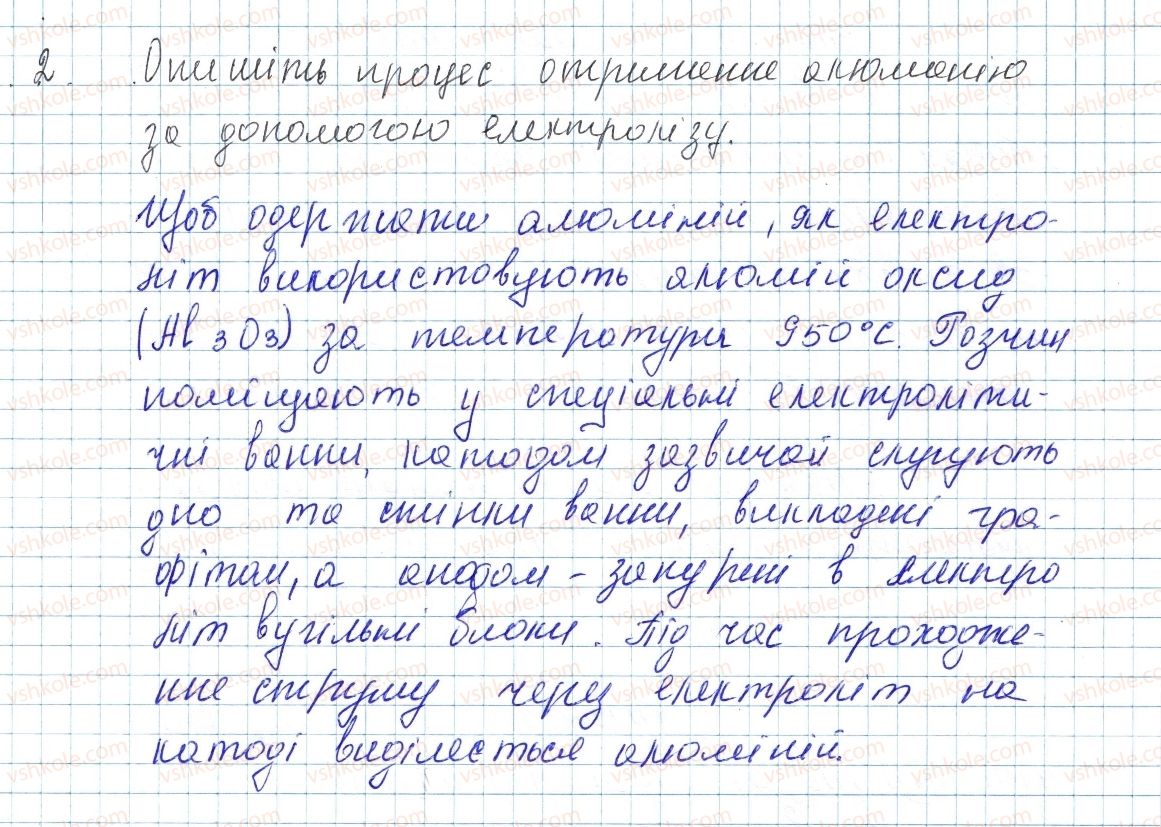 2. Опишіть процес отримання алюмінію
за допомогою електролізу.
Щоб одержати алюміній, як електро-
літ використовують алюмій оксид
(Al3O3) за температури 950°C. Розчин
поміщають у спеціальні електроліти-
чні ванни, катодом зазвичай слугують
дно та стінки ванни, викладені гра-
фітам, а анодом - занурені в електро
літ вугільні блоки. Під час проходже-
ння струму через електроліт на
катоді виділяється алюміній.